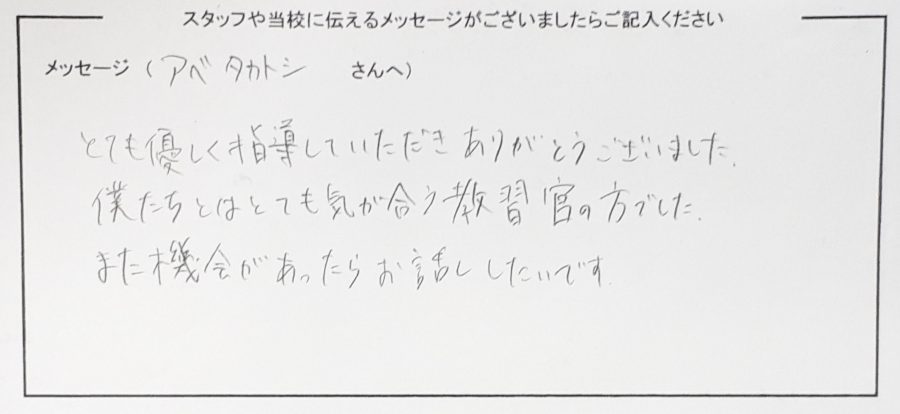 スタッフや当校に伝えるメッセージがございましたらご記入ください
メッセージ（アベ タカトシ さんへ）
とても優しく指導していただきありがとうございました。
僕たちとはとても気が合う教習官の方でした。
また機会があったらお話ししたいです。